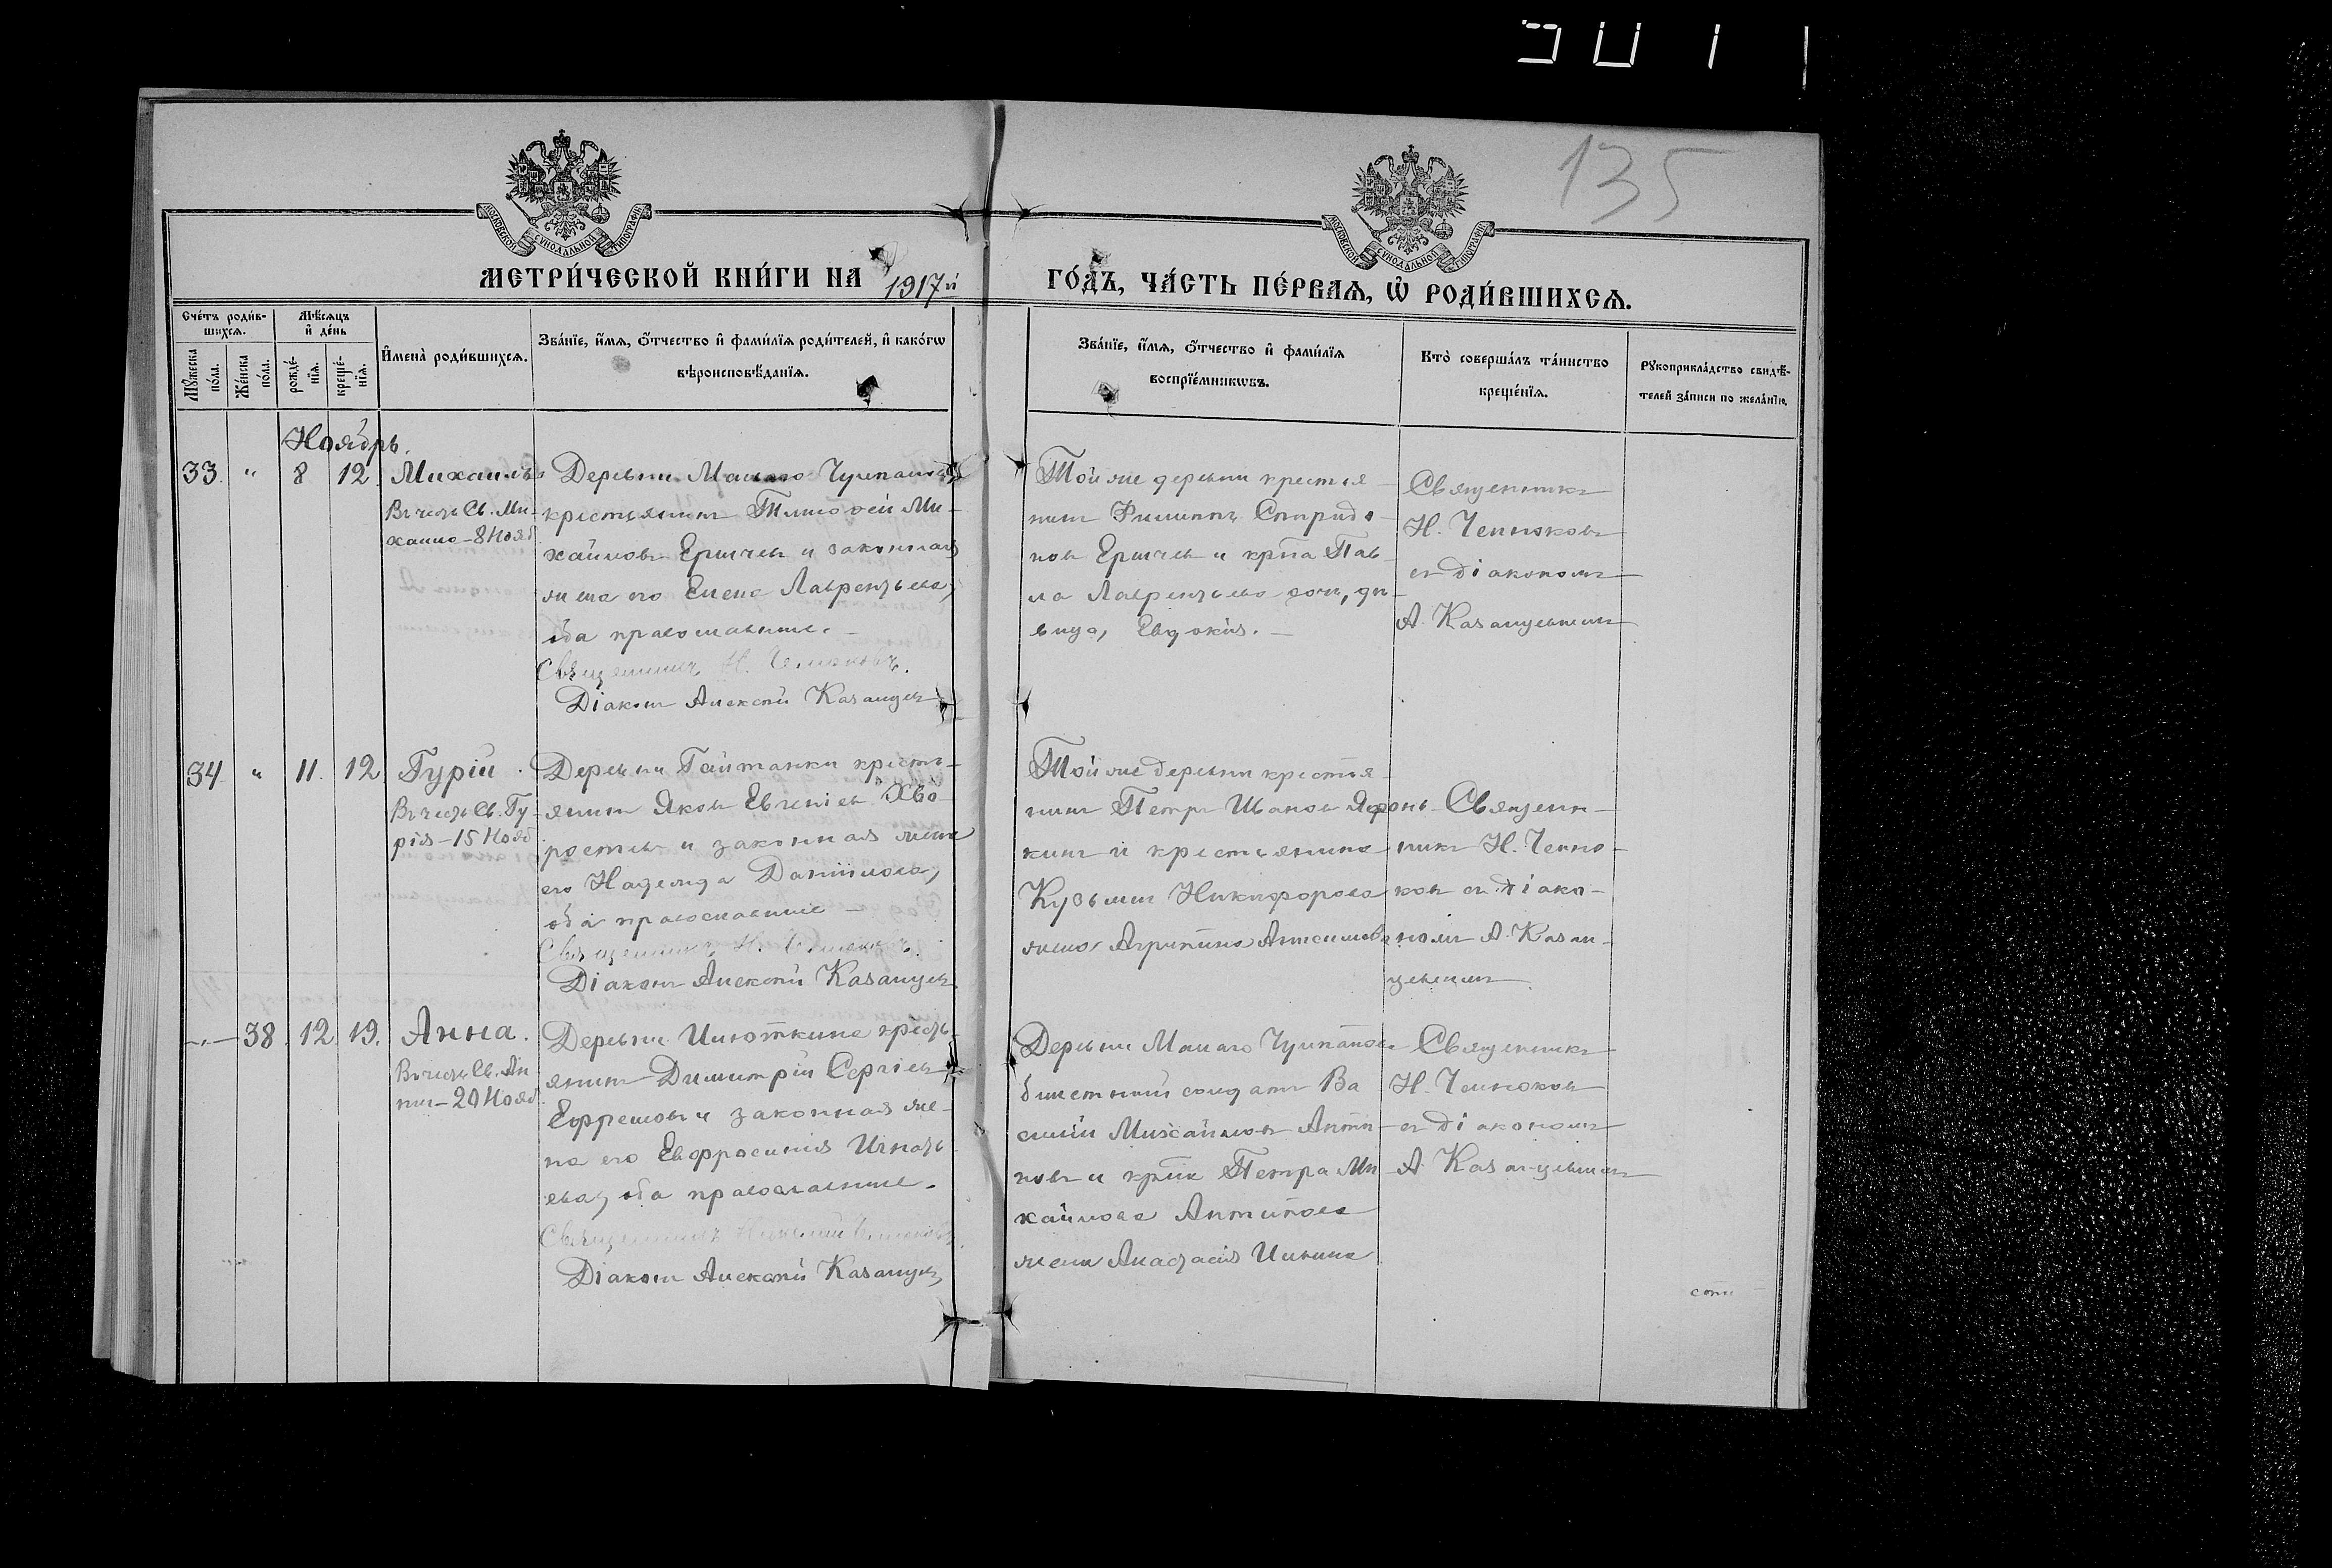 135
МОСКОВСКОЙ СѴНОДАЛЬНОЙ ТИПОГРАФІИ
МОСКОВСКОЙ СѴНОДАЛЬНОЙ ТИПОГРАФІИ
МЕТРИ́ЧЕСКОЙ КНИ́ГИ НА 1917й ГО́ДЪ, ЧА́СТЬ ПЕ́РВАЯ, Ѡ РОДИ́ВШИХСЯ.
Сче́тъ роди́в-
шихсѧ.
Мѣ́сѧцъ
и де́нь
Мꙋ́жеска
по́ла.
Же́нска
по́ла.
рожде́-
нїѧ.
креще́-
нїѧ.
И҆мена̀ роди́вшихсѧ.
Зва́нїе, и҆́мѧ, ѻ҆́тчество и҆ фами́лїѧ роди́телей, и҆ како́гѡ
вѣроисповѣ́данїѧ.
Зва́нїе, и҆́мѧ, ѻ҆́тчество и҆ фами́лїѧ
воспрїе́мникѡвъ.
Кто̀ соверша́лъ та́инство
креще́нїѧ.
Рꙋкоприкла́дство свидѣ́-
телей за́писи по жела́нїю.
Ноябрь.
33. " 8 12. Михаилъ
Въ честь Св. Ми-
хаила - 8 Нояб
Деревни Малаго Чулпанова
крестьянинъ Тимоѳей Ми-
хайловъ Ершовъ и законная
жена его Елена Лаврентьева,
оба православные. -
Священникъ Н. Челноковъ.
Діаконъ Алексѣй Казанцевъ
Той же деревни крестья-
нинъ Филиппъ Спиридо-
новъ Ершовъ и крѣ-на Пав-
ла Лаврентьева дочь, дѣ-
вица, Евдокія. -
Священникъ
Н. Челноковъ
съ діакономъ
А. Казанцевымъ
34 " 11. 12 Гурій.
Въ честь Св. Гу-
рія - 15 Нояб
Деревни Гайтанки кресть-
янинъ Яковъ Евгеніевъ Хво-
ростовъ и законная жена
его Надежда Даніилова,
оба православные -
Священникъ Н. Челноковъ.
Діаконъ Алексѣй Казанцевъ
Той же деревни крестья-
нинъ Петръ Ивановъ Афонь-
кинъ и крестьянина
Кузьмы Никифорова
жена Агриппина Анисимова
Священ-
никъ Н. Челно-
ковъ съ діако-
номъ А. Казан-
цевымъ
-"- 38. 12 19. Анна.
Въ честь Св. Ан
ны - 20 Нояб.
Деревни Илюткина кресть-
янинъ Димитрій Сергіевъ
Ефремовъ и законная же-
на его Евфросинія Игнать-
ева, оба православные.
Священникъ Николай Челноковъ
Діаконъ Алексѣй Казанцевъ
Деревни Малаго Чулпанова
билетный солдатъ Ва
силій Михайловъ Антип-
повъ и крѣ-на Петра Ми
хайлова Антипова
жена Анастасія Ильина
Священникъ
Н. Челноковъ
съ діакономъ
А. Казанцевымъ